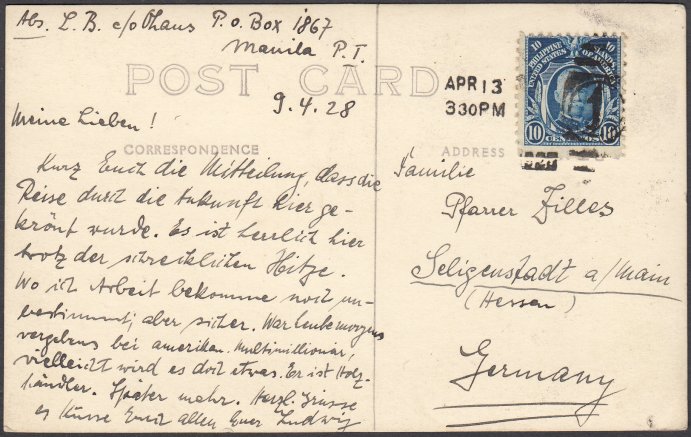 Abs. L. B. c/o Ohaus P. o. Box 1867
Manila P. I.
POST CARD
9.4.28
Meine Lieben!
CORRESPONDENCE
Kurz Euch die Mitteilung, dass die
Reise durch die Ankunft hier ge-
krönt wurde. Es ist herrlich hier
trotz der schrecklichen Hitze.
Wo ich Arbeit bekomme noch un-
bestimmt; aber sicher. War heute morgens
vergebens bei amerikan. Multimillionär,
vielleicht wird es doch etwas. Er ist Holz-
händler. Später mehr. Herzl. Grüsse
u Küsse Euch allen Euer Ludwig
APR 13
3 30 PM
10 PHILIPPINE ISLANDS 10
UNITED STATES OF AMERICA
10 CENTAVOS 10
ADDRESS
Familie
Pfarrer Zilles
Seligenstadt a/Main
(Hessen)
Germany